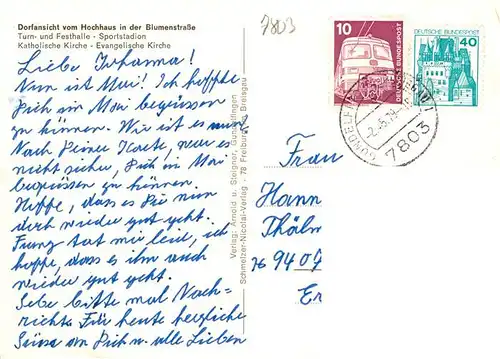 Dorfansicht vom Hochhaus in der Blumenstraße
Turn- und Festhalle · Sportstadion
Katholische Kirche · Evangelische Kirche
7803
Liebe Johanna!
Nun ist Mai! Ich hoffte
Dich im Mai begrüssen
zu können. Wie ist es nun?
Nach Deiner Karte, war es
nicht sicher, Dich im Mai
begrüssen zu können.
Hoffe, dass es Dir nun
doch wieder gut geht.
tat mir leid, ich
hoffe, dass es ihm auch
wieder gut geht.
Gebe bitte mal Nach-
richt. Für heute herzliche
Grüsse an Dich u. alle Lieben
Verlag: Arnold u. Steigner, Gundelfingen
Schmelzer-Nicolai-Verlag · 78 Freiburg im Breisgau
10
DEUTSCHE BUNDESPOST
DEUTSCHE BUNDESPOST
40
GUNDELFINGEN
-2.-5.79
7803
Frau
Hann
Thäln
9409
Er